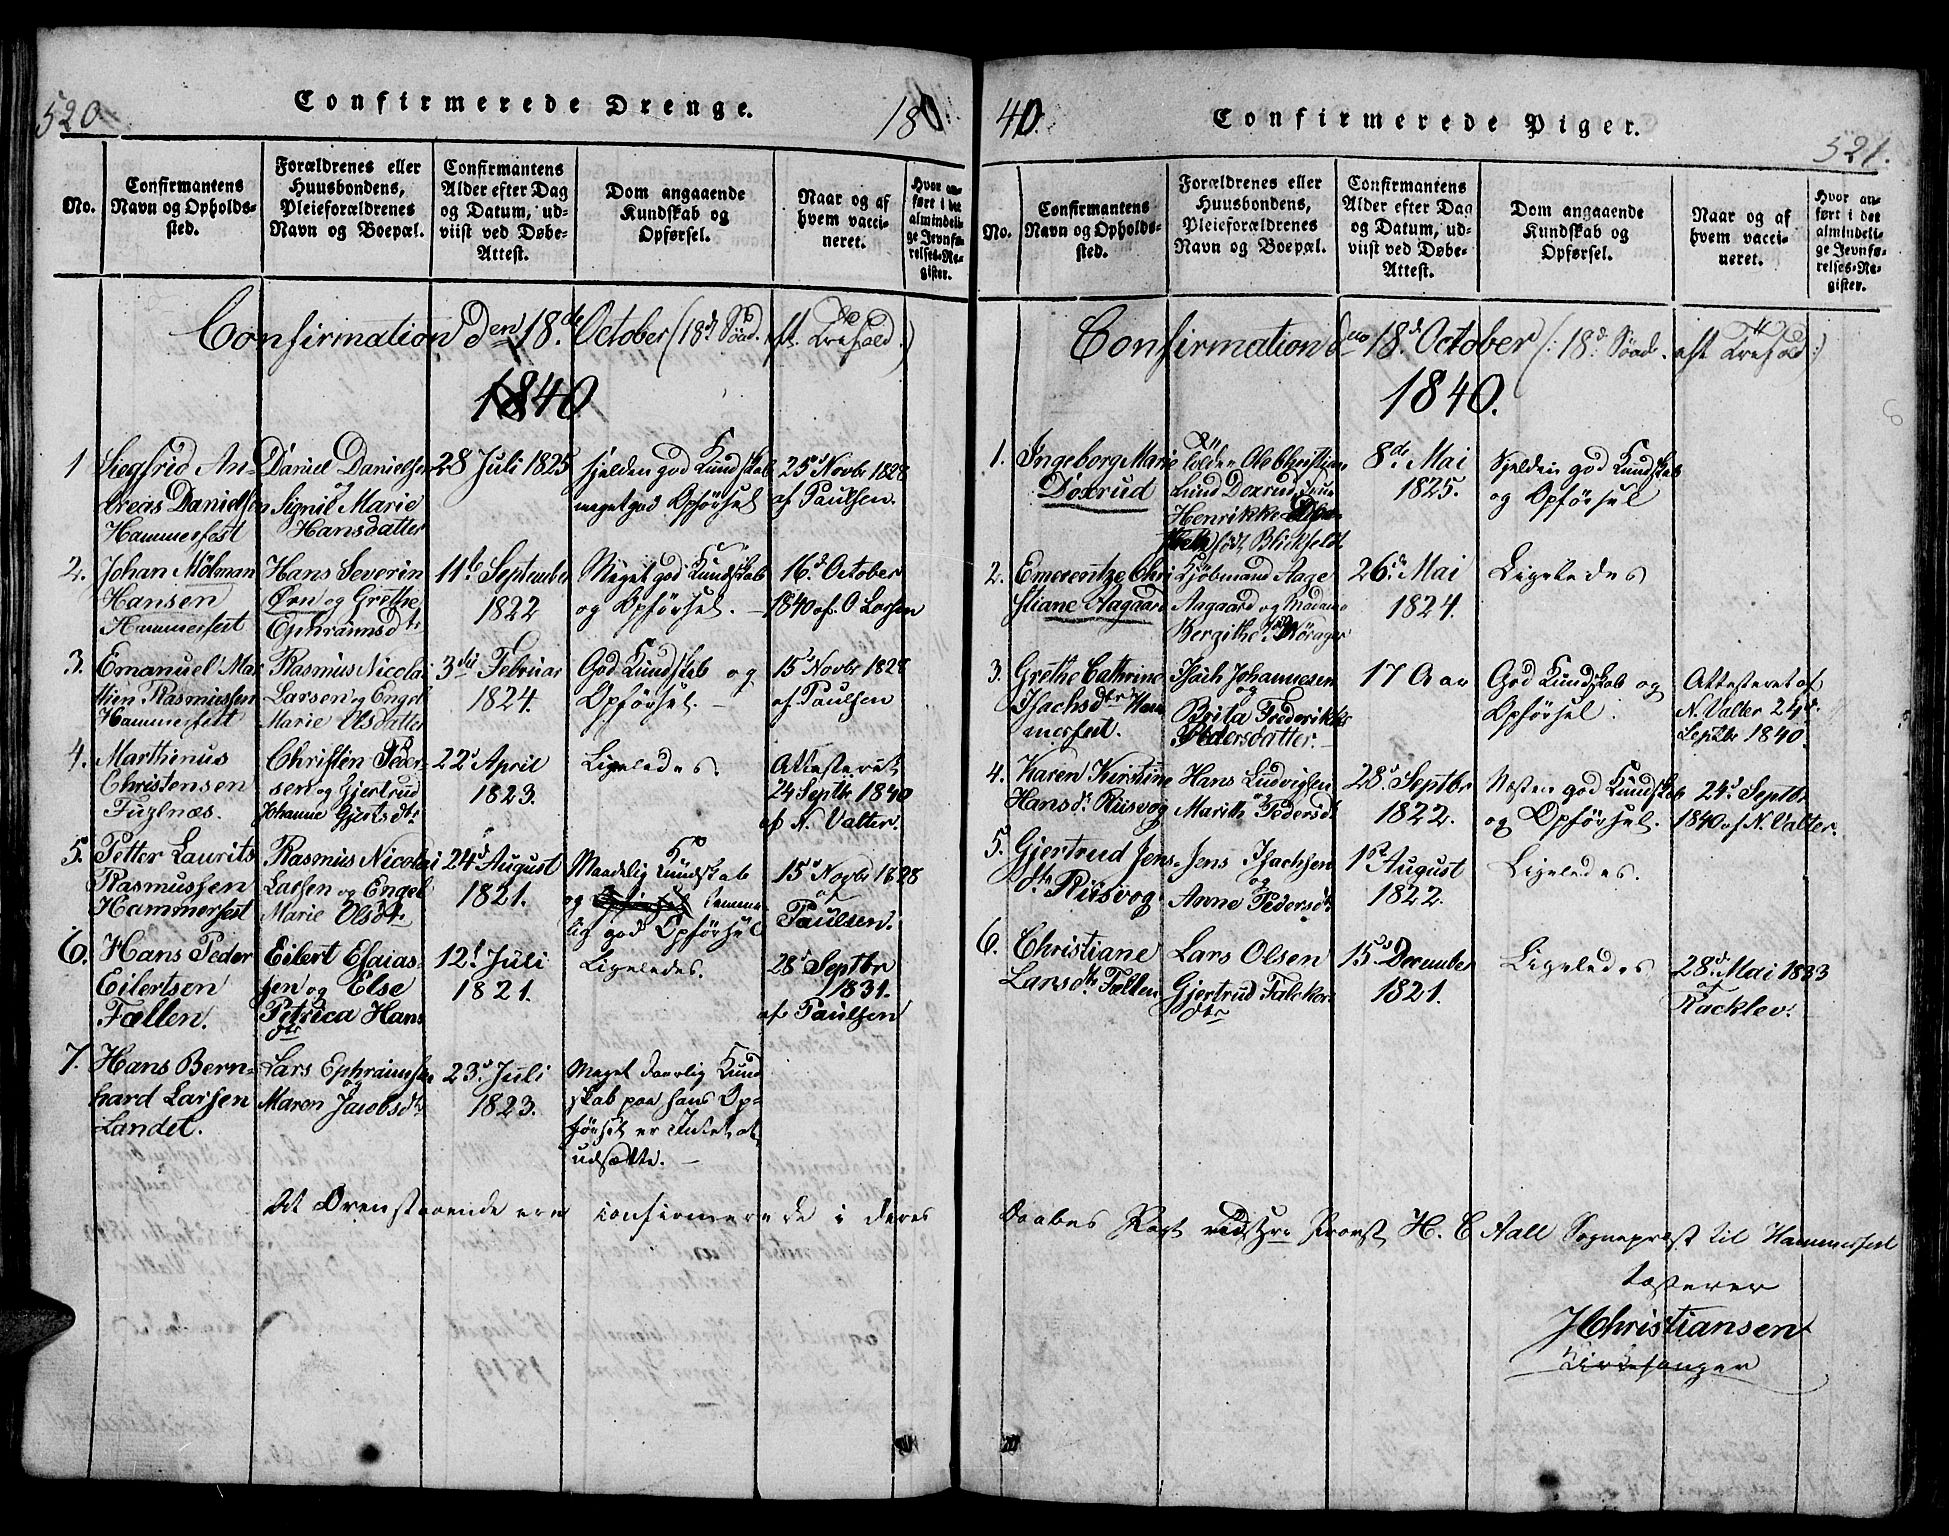 520. Confirmerede Drenge. 18
No.
Confirmantens
Navn og Opholds-
sted.
Forældrenes eller
Huusbondens,
Pleieforældrenes
Navn og Boepæl.
Confirmantens
Alder efter Dag
og Datum, ud-
viist ved Døbe-
Attest.
Dom angaaende
Kundskab og
Opførsel.
Naar og af
hvem vacci-
neret.
Hvor an-
ført i det
almindeli-
ge Jevnfø-
relses-Re-
gister.
Confirmation den 18de October (18d Sønd. eft. Trefold.)
1840
1
Siegfrid An-
dreas Danielsen
Hammerfest
Daniel Danielsen
og
Signil Marie
Hansdatter
28 Juli 1825
sjelden god Kundskab
meget god Opførsel
25d Novbr 1828
af Paulsen.
2.
Johan Mölman
Hansen
Hammerfest
Hans Severin
Ørn og Grethe
Ephraimsdtr
11te September
1822
Meget god Kundskab
og Opførsel. -
16d October
1840 af O. Larsen
3.
Emanuel Mar-
thin Rasmussen
Hammerfest
Rasmus Nicolai
Larsen og Engel
Marie Olsdatter
3die Februar
1824.
God Kundskab og
Opførsel. -
15d Novbr 1828
af Paulsen
4.
Marthinus
Christensen
Fuglnæs.
Christen Peder-
sen og Gjertrud
Johanne Gjertsdtr
22d April
1823.
Ligeledes.
Attesteret
24 Septbr 1840
af N. Valter.
5.
Petter Laurits
Rasmussen
Hammerfest
Rasmus Nicolai
Larsen og Engel
Marie Olsdtr
24d August
1821.
Maadelig Kundskab
og Opførsel temme-
lig god Opførsel
15d Novbr 1828
af
Paulsen.
6.
Hans Peder
Eilertsen
Fællen.
Eilert Esaias-
sen og Else
Petrica Hans
dtr
12d Juli
1821.
Ligeledes.
28d Septbr
1831.
af Paulsen
7.
Hans Bern-
hard Larsen
Landet.
Lars Ephraimsen
og
Maren Jacobsdtr
23d Juli
1823.
Meget daarlig Kund
skab paa hans Op-
førsel er Intet at
udsætte. -
At Ovenstaaende ere confirmerede i deres
40. Confirmerede Piger. 521.
No.
Confirmantens
Navn og Opholds-
sted.
Forældrenes eller
Huusbondens,
Pleieforældrenes
Navn og Boepæl.
Confirmantens
Alder efter Dag
og Datum, ud-
viist ved Døbe-
Attest.
Dom angaaende
Kundskab og
Opførsel.
Naar og af
hvem vacci-
neret.
Hvor an-
ført i det
almindeli-
ge Jevnfø-
relses-Re-
gister.
Confirmation den 18d October (: 18d Sønd. eft Trefold:)
1840.
1.
Ingeborg Marie
Doxrud
Ole Christian
Lund Doxrud Frue
Henrikke
født Blickfeldt
8de Mai
1825.
Sjelden god Kundskab
og Opførsel
2.
Emerentze Chri
stiane Aagaard
Kjöbmand Aage
Aagaard og Madame
Bergithe
26d Mai
1824.
Ligeledes
3.
Grethe Cathrine
Isachsdtr Ham
merfest.
Isach Johannesen
og
Brita Frederikke
Pedersdatter. -
17 Aar
God Kundskab og
Opførsel.
Attesteret af
N. Valter 24d
Septbr 1840.
4.
Karen Kirstine
Hansdt. Riisvog
Hans Ludvigsen
og
Marith Pedersdt
28d Septbr
1822.
Næsten god Kundskab
og Opførsel.
24d Septbr
1840 af N. Valter.
5.
Gjertrud Jens-
dtr Riisvog
Jens Isachsen
og
Anne Pedersdtr
1st August
1822.
Ligeledes.
6.
Christiane
Larsdtr Fællen
Lars Olsen
Gjertrud Falckor
dtr
15de December
1821.
Ligeledes
28d Mai 1833
af
Racklev.
Daabes Pagt Provst H. C Aall Sognepræst til Hammerfest
testerer
J Christiansen
Kirkesanger